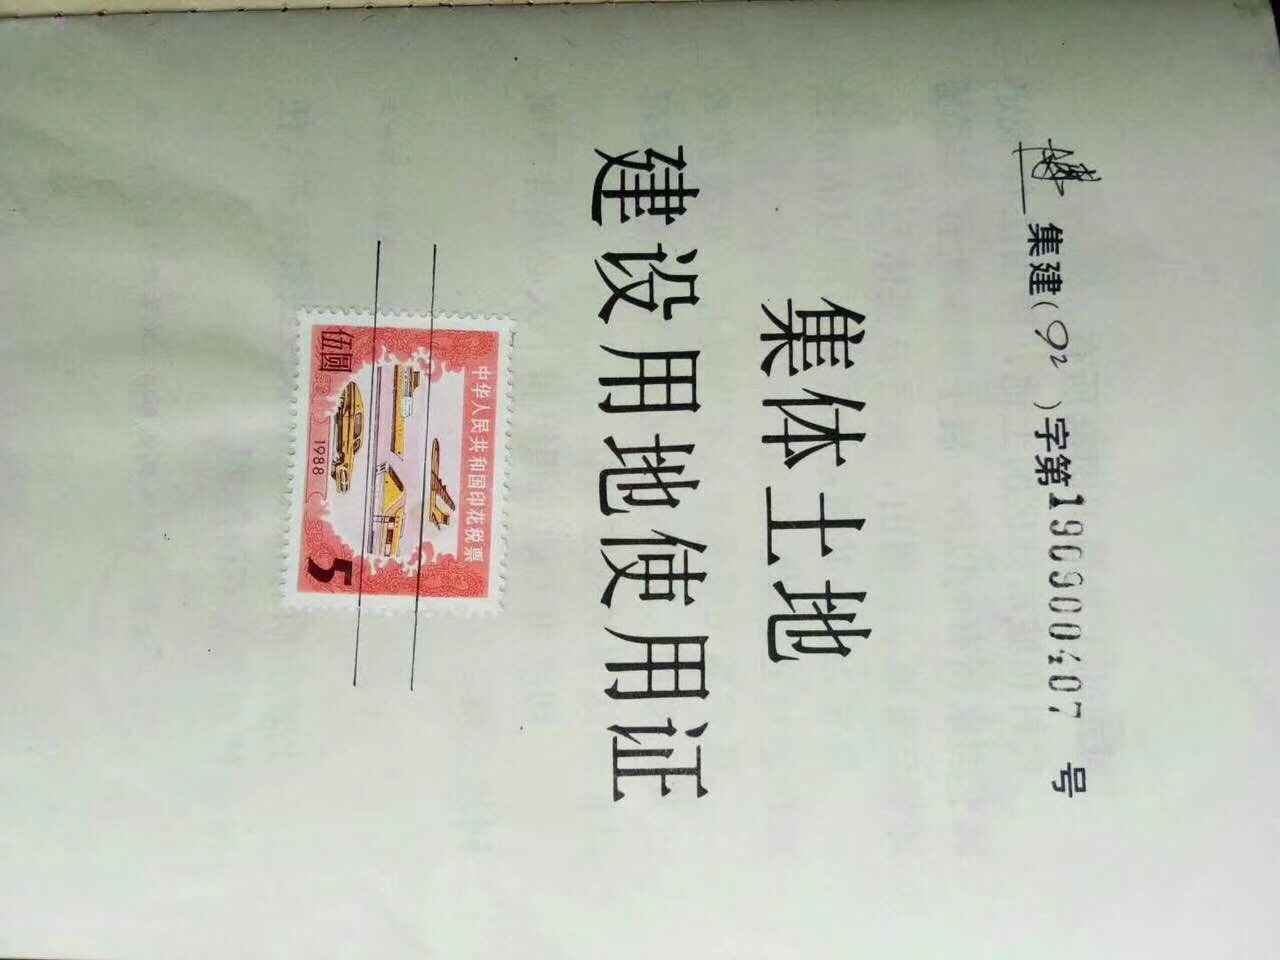 集建(92)字第190900407号
集体土地
建设用地使用证
中华人民共和国印花税票
伍圆
1988
5